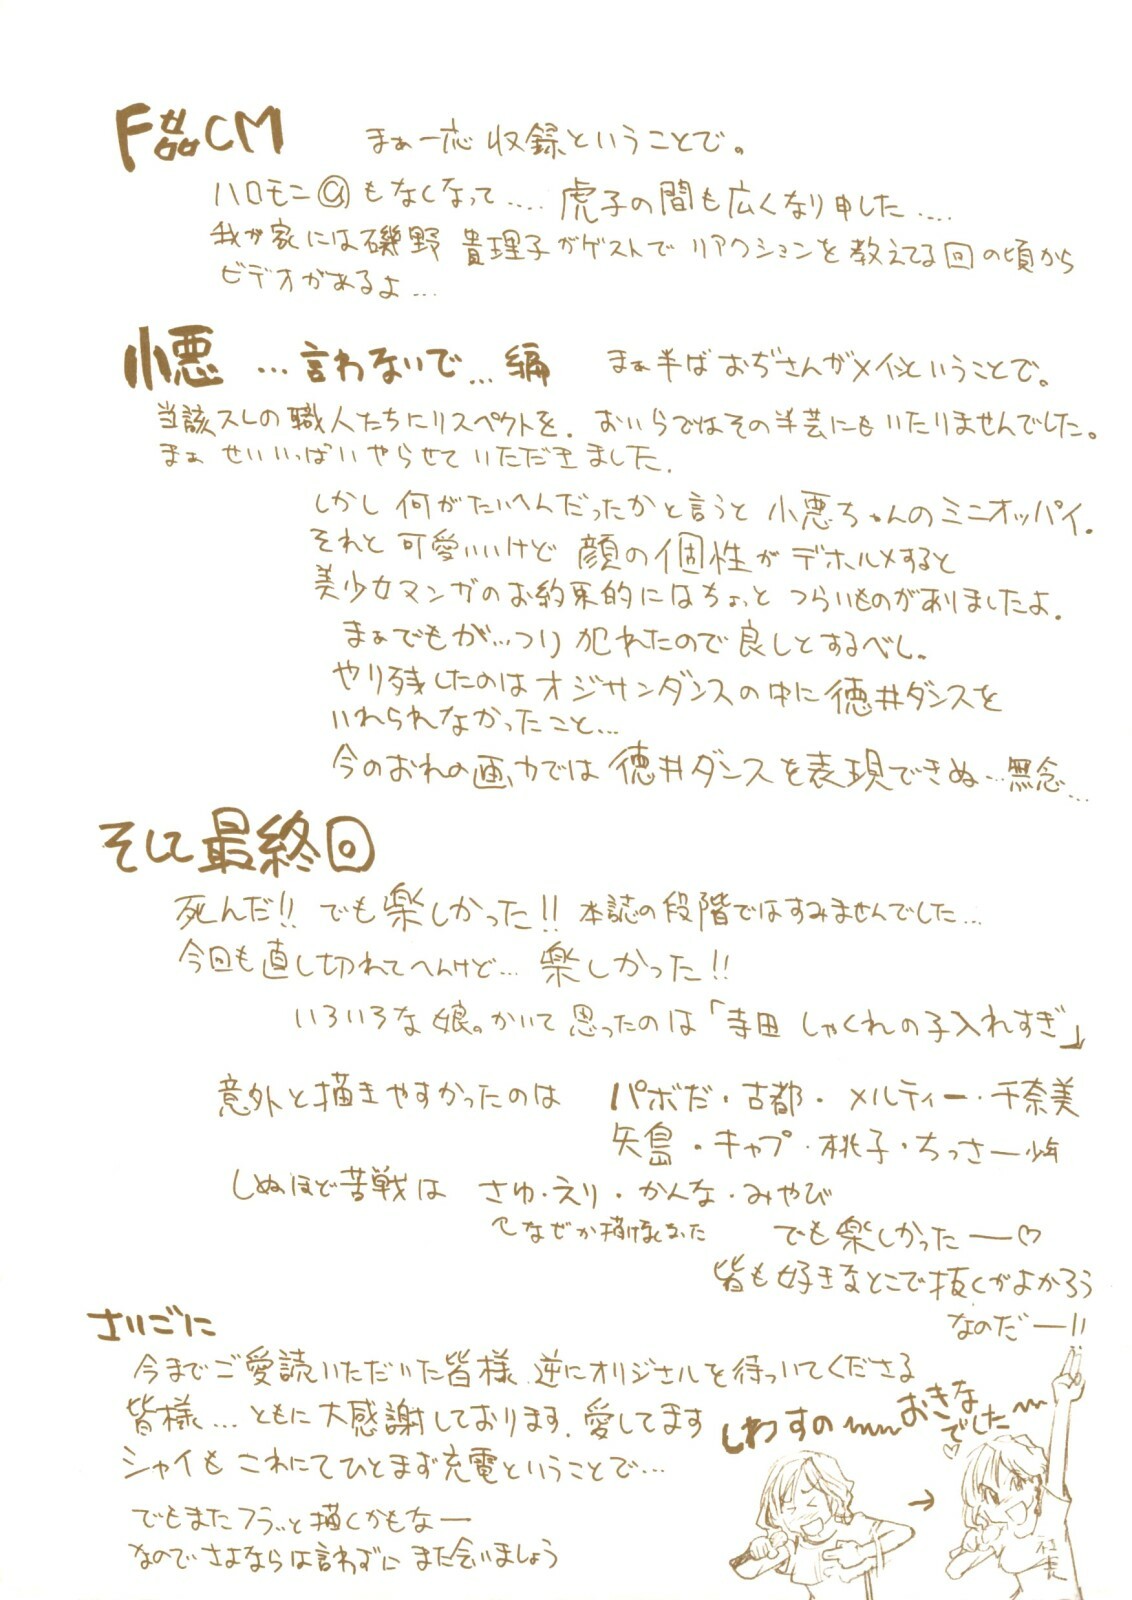 F磊CM まぁ一応 収録ということで。
ハロモニ@もなくなって‥‥ 虎子の間も広くなり申した‥‥
我が家には磯野 貴理子がゲストで リアクションを教えてる回の頃から
ビデオがあるよ…
小悪 …言わないで… 編 まぁ半ば おぢさんがメインということで。
当該スレの職人たちにリスペクトを. おいらではその半芸にもいたりませんでした。
まぁ せいいっぱいやらせていただきました.
しかし 何がたいへんだったかと言うと 小悪ちゃんのミニオッパイ.
それと 可愛いいけど 顔の個性が デホルメすると
美少女マンガのお約束的にはちょっと つらいものがありましたよ.
まぁでもが…つり 犯れたので良しとするべし.
やり残したのはオジサンダンスの中に徳井ダンスを
いれられなかったこと…
今のおれの画力では 徳井ダンスを表現できぬ…無念…
そして最終回
死んだ!! でも楽しかった!! 本誌の段階ではすみませんでした…
今回も直し切れてへんけど… 楽しかった!!
いろいろな娘。かいて思ったのは「寺田 しゃくれの子入れすぎ」
意外と描きやすかったのは パボだ・古都・メルティー・千奈美
矢島・キャプ・桃子・ちっさー少年
しぬほど苦戦は さゆ・えり・かんな・みやび
なぜか描けなかった でも楽しかったー♡
皆も好きなとこで抜くがよかろう
なのだー!!
さいごに
今までご愛読いただいた皆様 逆にオリジナルを待っいてくださる
皆様…ともに大感謝しております. 愛してます
シャイも これにてひとまず充電ということで…
でもまたフラッと描くかもなー
なので さよならは言わずに また会いましょう
しわすの〜〜 おきな
でした〜
社長